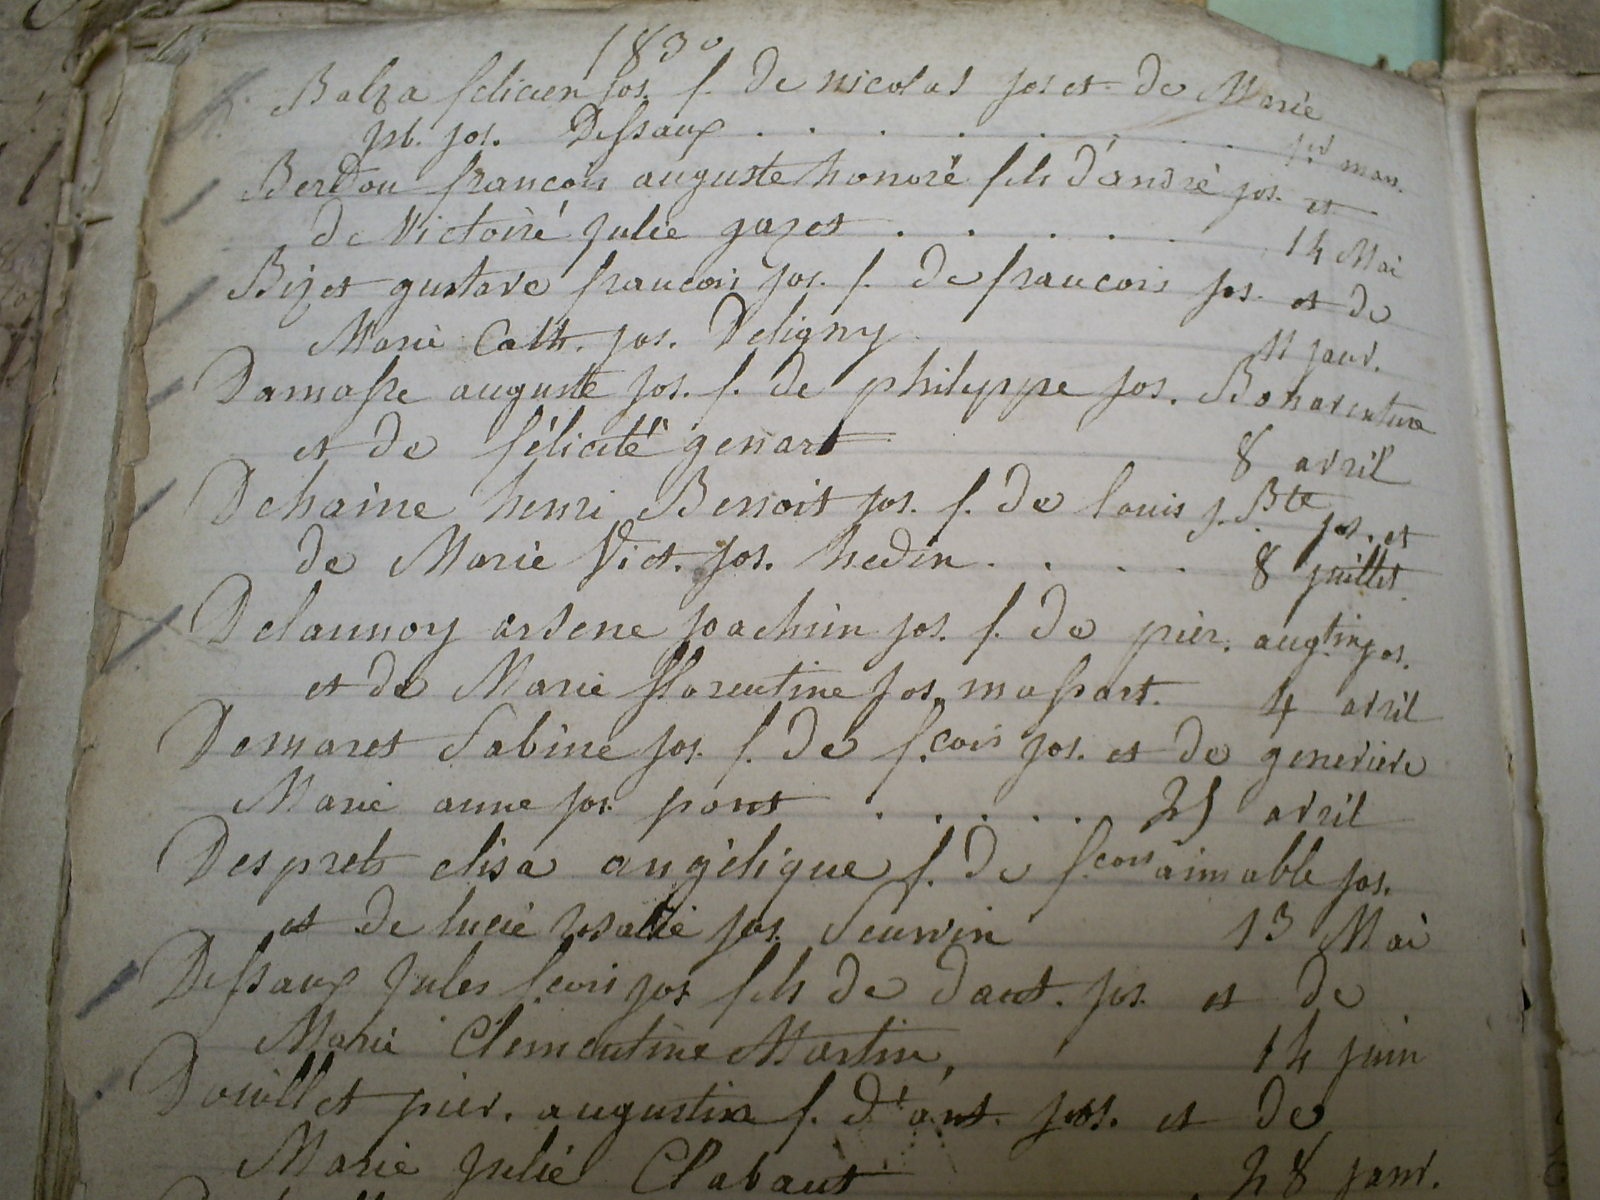 1830
Balza felicien jos. f. de nicolas jos et de Marie
jsb. jos. Dessaux . . . . . . . 1er mars.
Berdou francois auguste honoré fils d'andré jos. et
de Victoire Julie gazet . . . . . 14 Mai
Bizet gustave francois jos. f. de francois jos. et de
Marie Cath. jos. Deligny 11 janv.
Damasse auguste jos. f. de philyppe jos. Bonaventure
et de félicité genart 8 avril
Dehaine henri Benoit jos. f. de louis j. Bte jos. et
de Marie Vict. jos. hedin . . . . 8 juillet
Delaunoy arsene joachim jos. f. de pier. augtin jos.
et de Marie florentine jos. massart. 4 avril
Demaret Sabine jos. f. de f.cois jos. et de genevieve
Marie anne jos. pont . . . . . 25 avril
Desprets elisa angélique f. de f.cois aimable jos.
et de lucie rosalie jos. 13 Mai
Dessaux Jules f.cois jos. fils de dant. jos. et de
Marie Clementine Martin, 14 juin
Douillet pier. augustin f. d'ant. jos. et de
Marie Julie Clabaut . 28 janv.